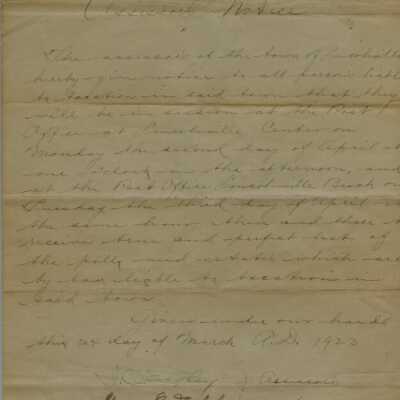 Assessors Notice
The assessors of the town of Lincolnville
hereby give notice to all persons liable
to taxation in said town that they
will be in session at the Post
Office at Lincolnville Center on
Monday the second day of April at
one o'clock in the afternoon, and
at the Post Office Lincolnville Beach on
Tuesday the third day of April at
the same hour then and there to
receive true and perfect lists of
the polls and estates which are
by law liable to taxation in
said town.
Given under our hands
this day of March A.D. 1923
Assessors